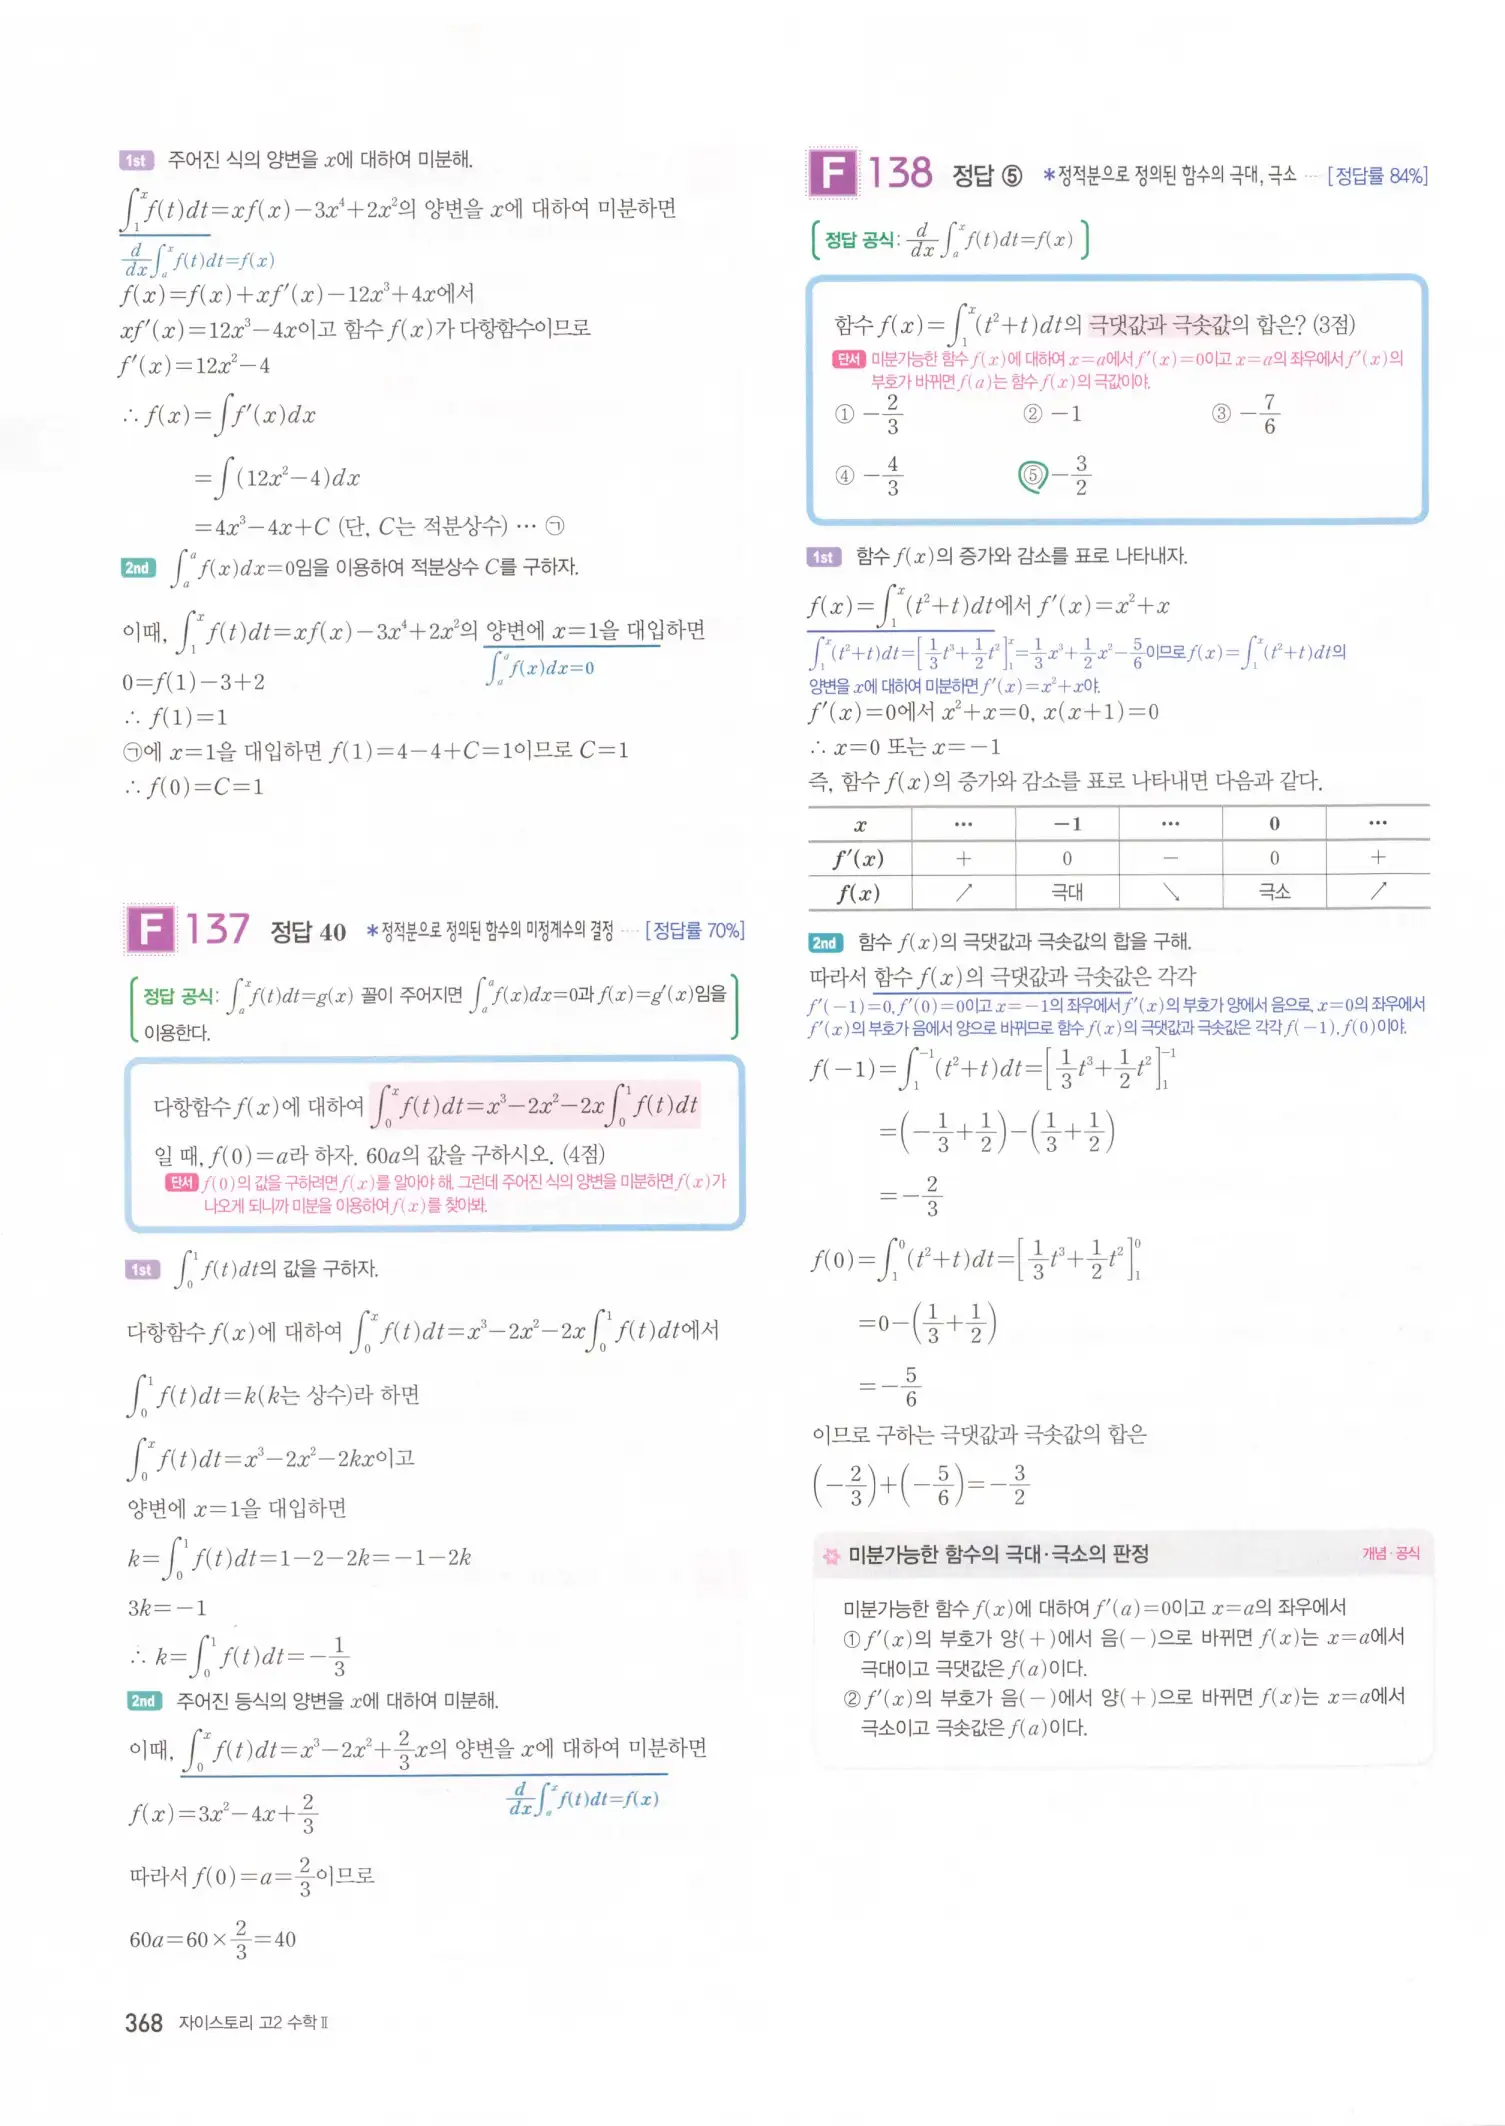 1st 주어진 식의 양변을 x에 대하여 미분해.
∫₁ˣ f(t)dt=xf(x)−3x⁴+2x²의 양변을 x에 대하여 미분하면
d/dx ∫ₐˣ f(t)dt=f(x)
f(x)=f(x)+xf′(x)−12x³+4x에서
xf′(x)=12x³−4x이고 함수 f(x)가 다항함수이므로
f′(x)=12x²−4
∴ f(x)=∫f′(x)dx
=∫(12x²−4)dx
=4x³−4x+C (단, C는 적분상수) … ㉠
2nd ∫ₐᵃ f(x)dx=0임을 이용하여 적분상수 C를 구하자.
이때, ∫₁ˣ f(t)dt=xf(x)−3x⁴+2x²의 양변에 x=1을 대입하면
∫ₐᵃ f(x)dx=0
0=f(1)−3+2
∴ f(1)=1
㉠에 x=1을 대입하면 f(1)=4−4+C=1이므로 C=1
∴ f(0)=C=1
F 137 정답 40 *정적분으로 정의된 함수의 미정계수의 결정 ···· [정답률 70%]
정답 공식: ∫ₐˣ f(t)dt=g(x) 꼴이 주어지면 ∫ₐᵃ f(x)dx=0과 f(x)=g′(x)임을
이용한다.
다항함수 f(x)에 대하여 ∫₀ˣ f(t)dt=x³−2x²−2x∫₀¹ f(t)dt
일 때, f(0)=a라 하자. 60a의 값을 구하시오. (4점)
단서 f(0)의 값을 구하려면 f(x)를 알아야 해. 그런데 주어진 식의 양변을 미분하면 f(x)가
나오게 되니까 미분을 이용하여 f(x)를 찾아봐.
1st ∫₀¹ f(t)dt의 값을 구하자.
다항함수 f(x)에 대하여 ∫₀ˣ f(t)dt=x³−2x²−2x∫₀¹ f(t)dt에서
∫₀¹ f(t)dt=k(k는 상수)라 하면
∫₀ˣ f(t)dt=x³−2x²−2kx이고
양변에 x=1을 대입하면
k=∫₀¹ f(t)dt=1−2−2k=−1−2k
3k=−1
∴ k=∫₀¹ f(t)dt=−1/3
2nd 주어진 등식의 양변을 x에 대하여 미분해.
이때, ∫₀ˣ f(t)dt=x³−2x²+2/3x의 양변을 x에 대하여 미분하면
d/dx ∫ₐˣ f(t)dt=f(x)
f(x)=3x²−4x+2/3
따라서 f(0)=a=2/3이므로
60a=60×2/3=40
368 자이스토리 고2 수학Ⅱ
F 138 정답 ⑤ *정적분으로 정의된 함수의 극대, 극소 ···· [정답률 84%]
정답 공식: d/dx ∫ₐˣ f(t)dt=f(x)
함수 f(x)=∫₁ˣ(t²+t)dt의 극댓값과 극솟값의 합은? (3점)
단서 미분가능한 함수 f(x)에 대하여 x=a에서 f′(x)=0이고 x=a의 좌우에서 f′(x)의
부호가 바뀌면 f(a)는 함수 f(x)의 극값이야.
① −2/3 ② −1 ③ −7/6
④ −4/3 ⑤ −3/2
1st 함수 f(x)의 증가와 감소를 표로 나타내자.
f(x)=∫₁ˣ(t²+t)dt에서 f′(x)=x²+x
∫₁ˣ(t²+t)dt=[1/3t³+1/2t²]₁ˣ=1/3x³+1/2x²−5/6이므로 f(x)=∫₁ˣ(t²+t)dt의
양변을 x에 대하여 미분하면 f′(x)=x²+x야.
f′(x)=0에서 x²+x=0, x(x+1)=0
∴ x=0 또는 x=−1
즉, 함수 f(x)의 증가와 감소를 표로 나타내면 다음과 같다.
x … −1 … 0 …
f′(x) + 0 − 0 +
f(x) ↗ 극대 ↘ 극소 ↗
2nd 함수 f(x)의 극댓값과 극솟값의 합을 구해.
따라서 함수 f(x)의 극댓값과 극솟값은 각각
f′(−1)=0, f′(0)=0이고 x=−1의 좌우에서 f′(x)의 부호가 양에서 음으로, x=0의 좌우에서
f′(x)의 부호가 음에서 양으로 바뀌므로 함수 f(x)의 극댓값과 극솟값은 각각 f(−1), f(0)이야.
f(−1)=∫₁⁻¹(t²+t)dt=[1/3t³+1/2t²]₁⁻¹
=(−1/3+1/2)−(1/3+1/2)
=−2/3
f(0)=∫₁⁰(t²+t)dt=[1/3t³+1/2t²]₁⁰
=0−(1/3+1/2)
=−5/6
이므로 구하는 극댓값과 극솟값의 합은
(−2/3)+(−5/6)=−3/2
미분가능한 함수의 극대·극소의 판정 개념·공식
미분가능한 함수 f(x)에 대하여 f′(a)=0이고 x=a의 좌우에서
① f′(x)의 부호가 양(+)에서 음(−)으로 바뀌면 f(x)는 x=a에서
극대이고 극댓값은 f(a)이다.
② f′(x)의 부호가 음(−)에서 양(+)으로 바뀌면 f(x)는 x=a에서
극소이고 극솟값은 f(a)이다.